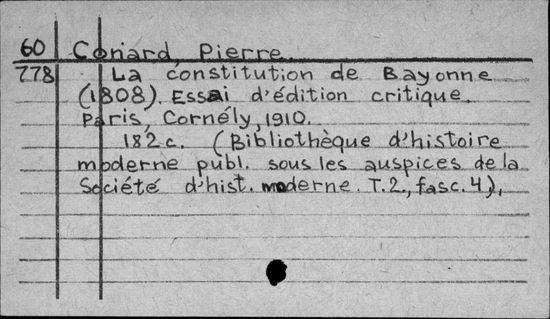 60 Conard, Pierre.
778 La constitution de Bayonne
(1808). Essai d'édition critique.
Paris, Cornély, 1910.
182 c. (Bibliothèque d'histoire
moderne publ. sous les auspices de la
Société d'hist. moderne. T.2., fasc. 4).